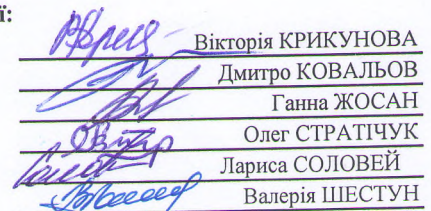 ї:
Вікторія КРИКУНОВА
Дмитро КОВАЛЬОВ
Ганна ЖОСАН
Олег СТРАТІЧУК
Лариса СОЛОВЕЙ
Валерія ШЕСТУН